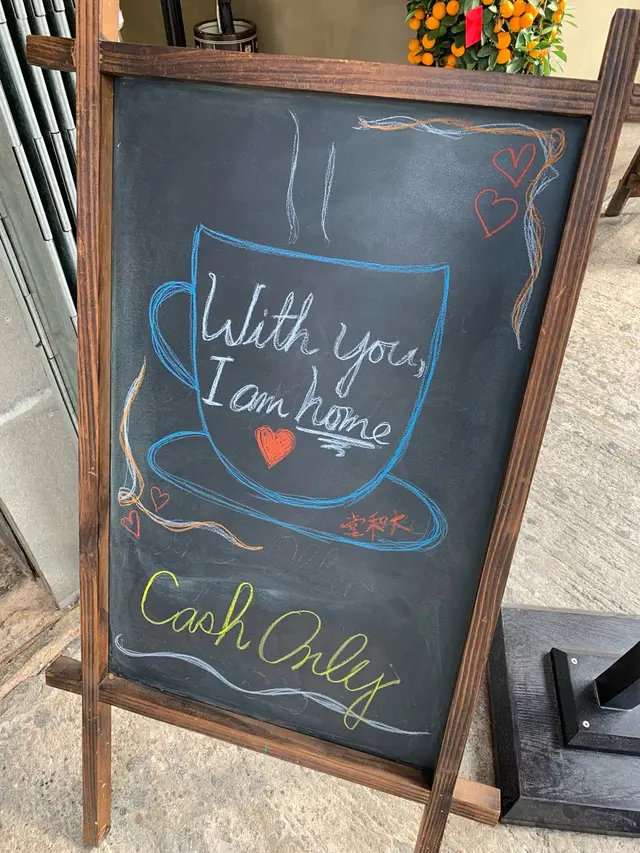 With you,
I am home
堂和大
Cash Only